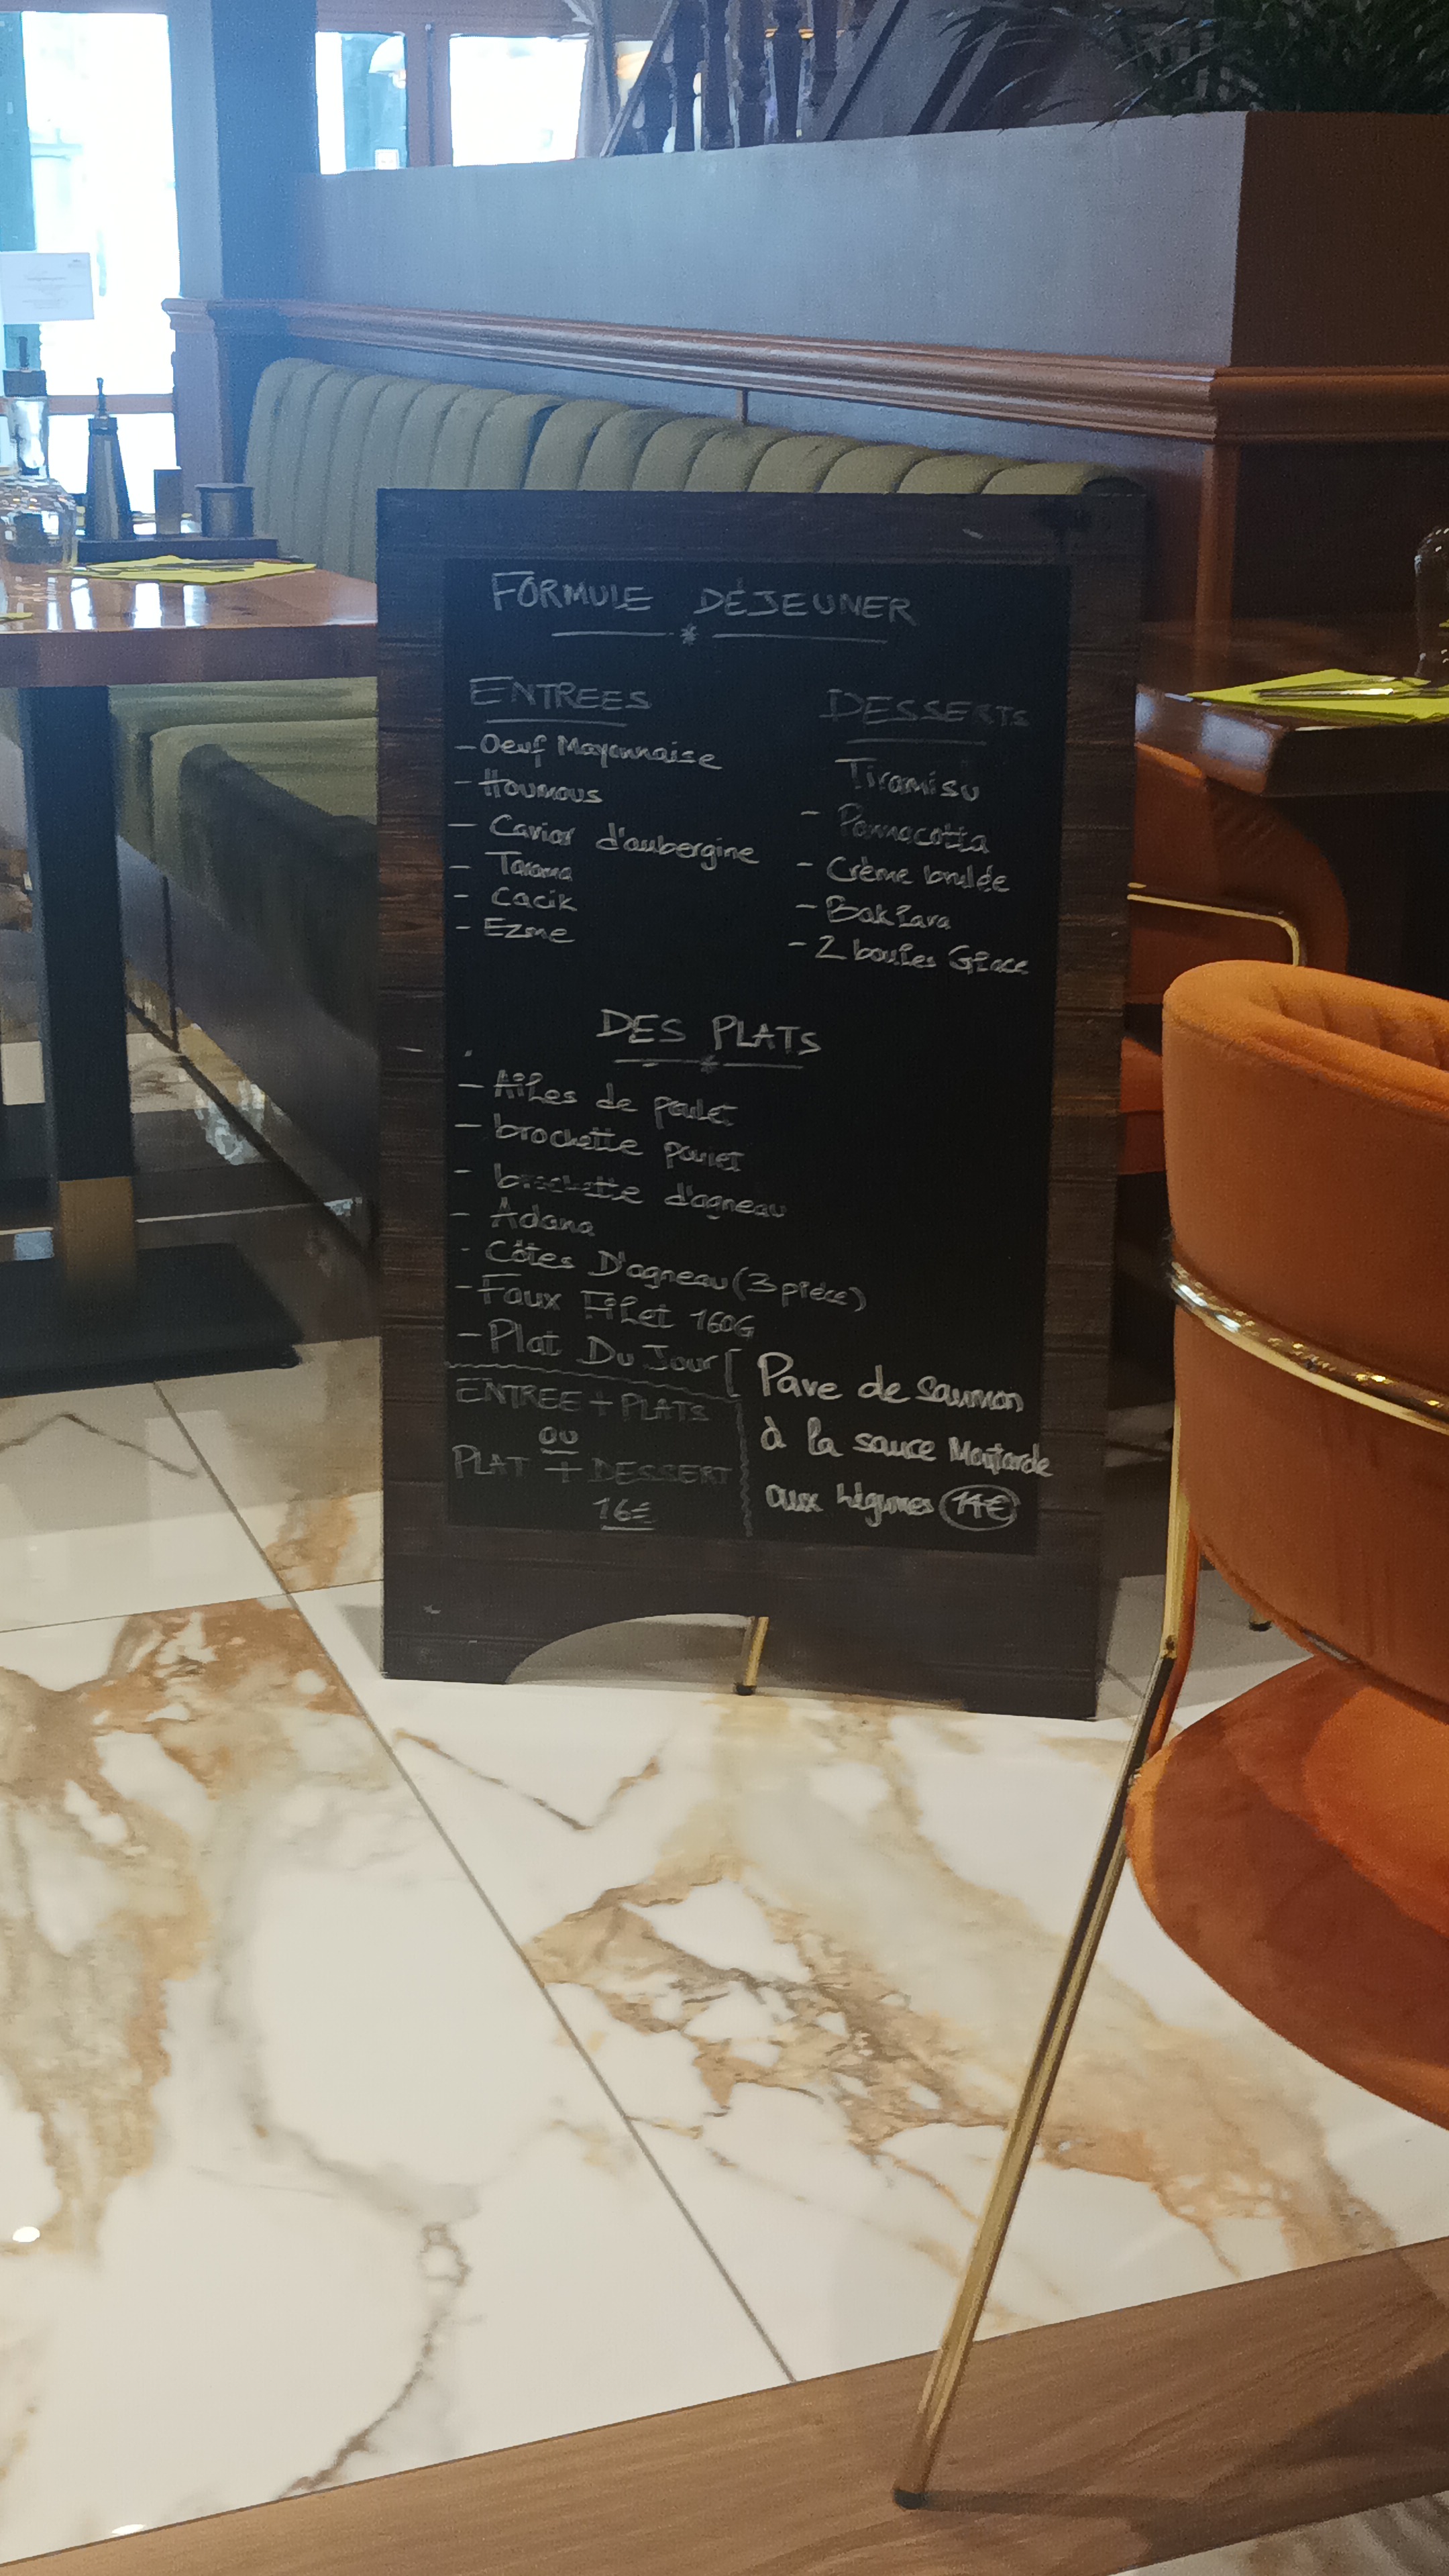 FORMULE DÉJEUNER
ENTREES
- Oeuf Mayonnaise
- Houmous
- Caviar d'aubergine
- Tarama
- Cacik
- Ezme
DESSERTS
Tiramisu
- Pannacotta
- Crème brulée
- Baklava
- 2 boules Glace
DES PLATS
- Ailes de poulet
- brochette poulet
- brochette d'agneau
- Adana
- Côtes D'agneau (3 pièce)
- Faux Filet 160G
- Plat Du Jour [
Pave de Saumon
à la sauce Moutarde
aux légumes 14€
ENTREE + PLATS
OU
PLAT + DESSERT
16€